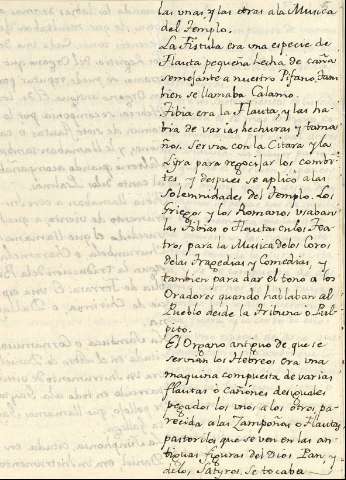 las unas, y las otras a la Musica
del Templo.
La Fistula era una especie de
Flauta pequeña hecha de caña
semejante a nuestro Pifano, tam
bien se llamaba Calamo.
Tibia era la Flauta, y las ha
bia de varias hechuras y tama
ños. Servia con la Citara y la
Lyra para regocijar los combi
tes y despues se aplicó a las
solemnidades del Templo. Los
Griegos y los Romanos usaban
las Tibias o Flautas en los Tea
tros para la Musica de los Coros
de las Tragedias y Comedias, y
tambien para dar el tono a los
Oradores quando hablaban al
Pueblo desde la Tribuna o Pul
pito.
El Organo antiguo de que se
servian los Hebreos era una
maquina compuesta de varias
flautas ó cañones desiguales
pegados los unos a los otros, pa
recida a las Zamponas o Flautas
pastoriles que se ven en las an
tiguas figuras del Dios Pan, y
de los Satyros. Se tocaba